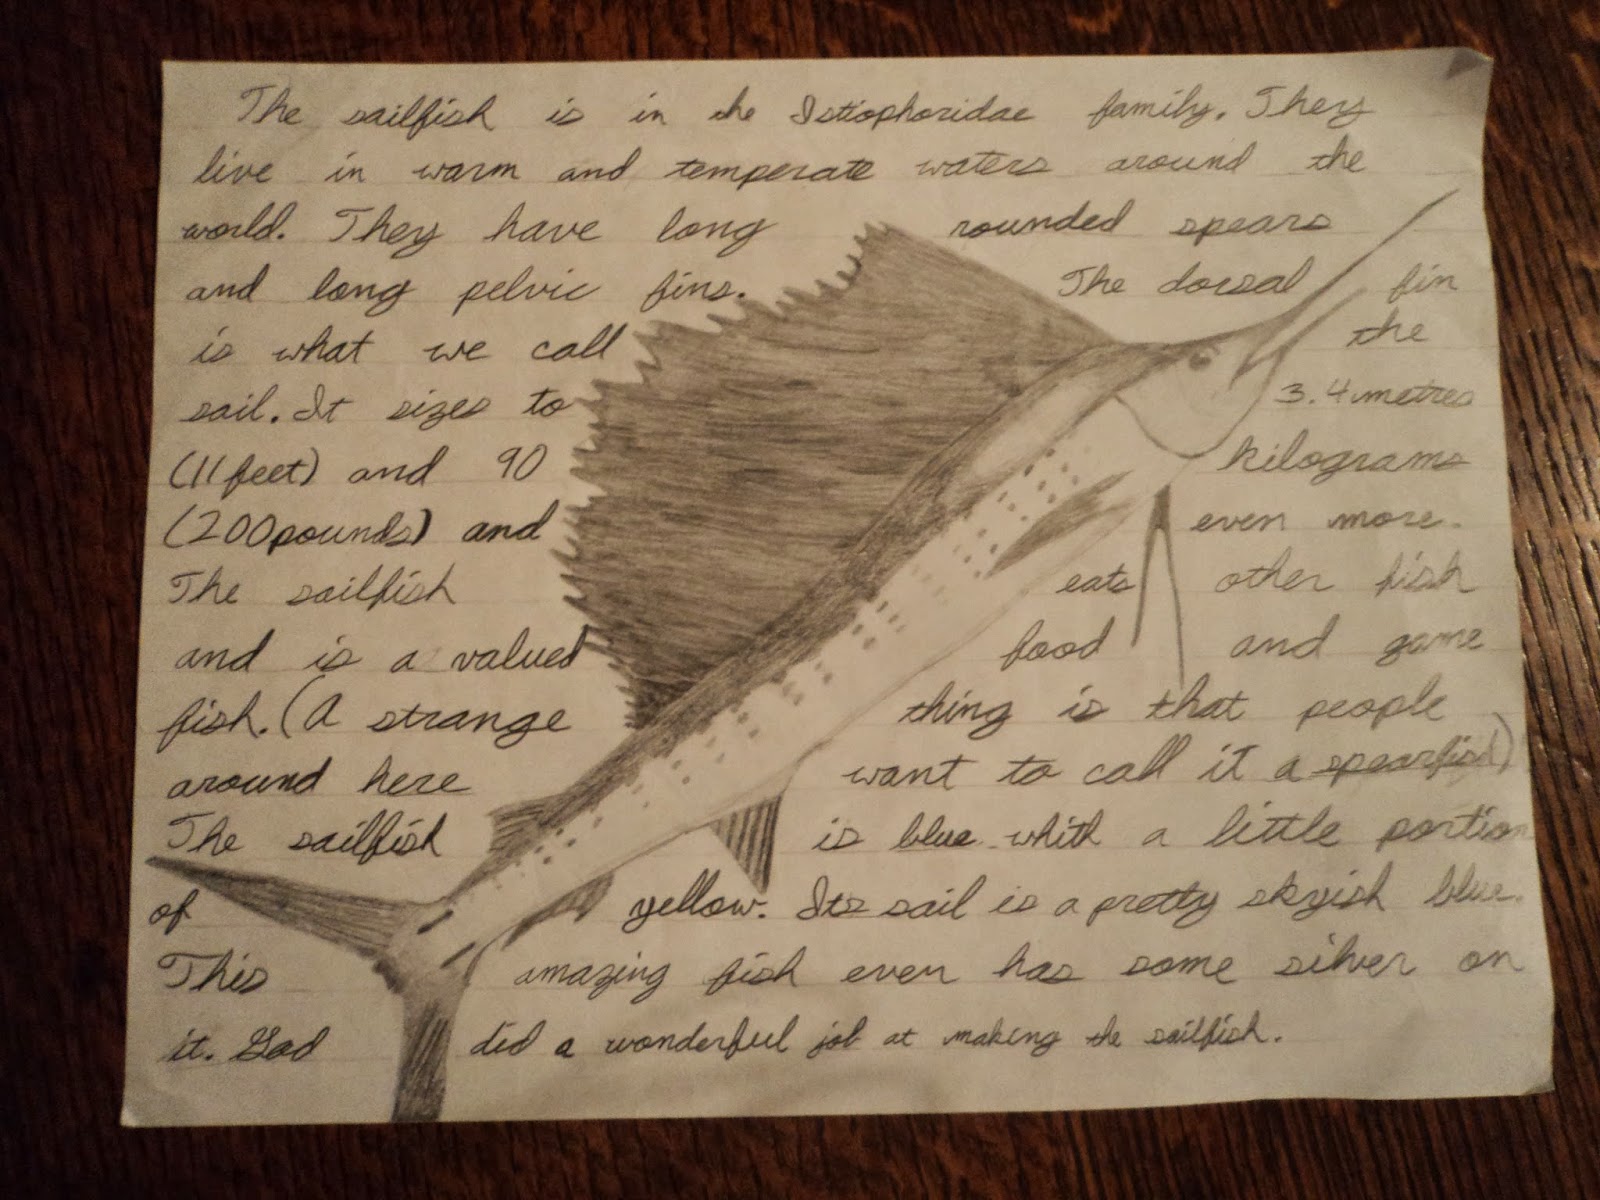 The sailfish is in the Istiophoridae family. They
live in warm and temperate waters around the
world. They have long rounded spears
and long pelvic fins. The dorsal fin
is what we call the
sail. It sizes to 3.4 metres
(11 feet) and 90 kilograms
(200 pounds) and even more.
The sailfish eats other fish
and is a valued food and game
fish. (A strange thing is that people
around here want to call it a spearfish)
The sailfish is blue whith a little portion
of yellow. Its sail is a pretty skyish blue.
This amazing fish even has some silver on
it. God did a wonderful job at making the sailfish.